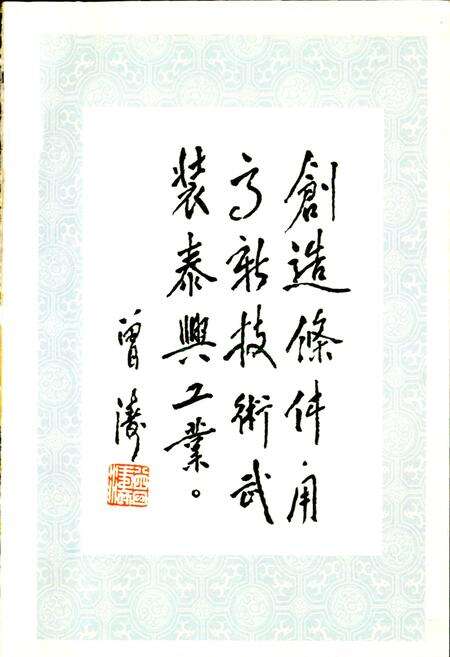 創造條件用
高新技術武
裝泰興工業。
曾濤